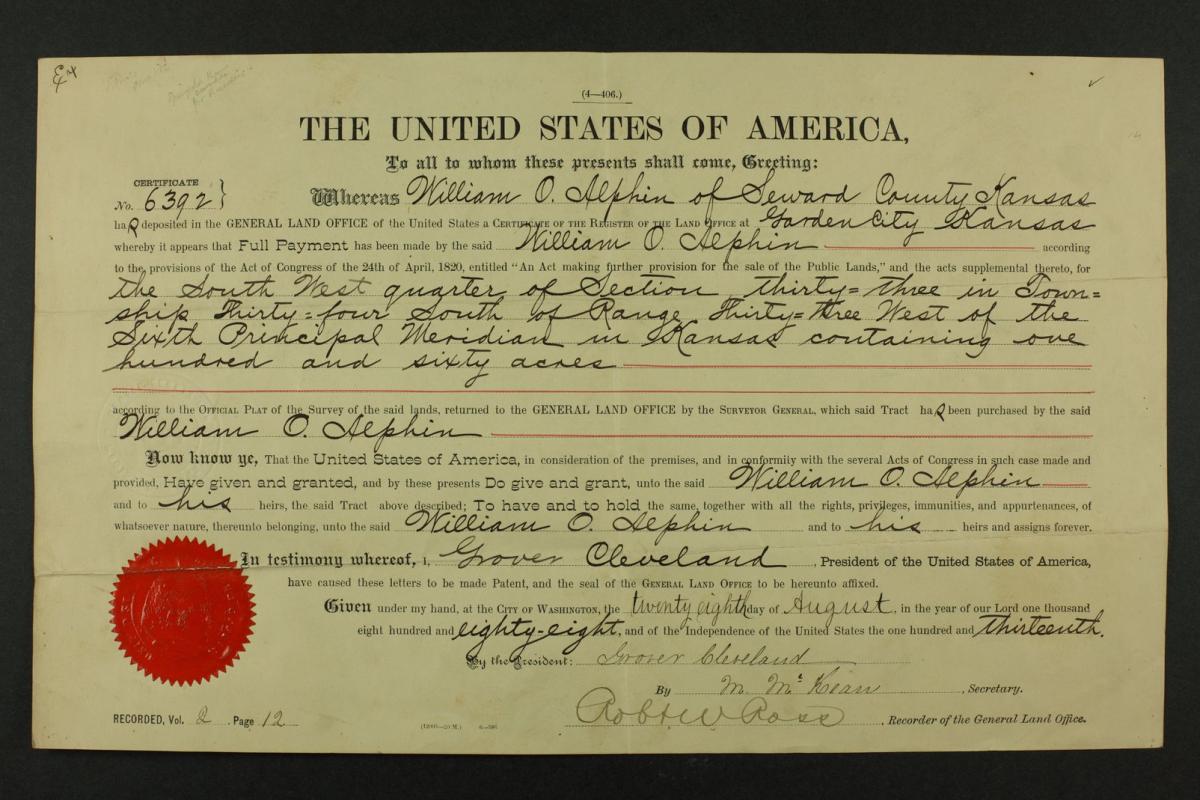 Ex
(4—406.)
THE UNITED STATES OF AMERICA,
To all to whom these presents shall come, Greeting:
CERTIFICATE
No. 6392 }
Whereas William O. Alphin of Seward County Kansas
has deposited in the GENERAL LAND OFFICE of the United States a CERTIFICATE OF THE REGISTER OF THE LAND OFFICE at Garden City Kansas
whereby it appears that Full Payment has been made by the said William O. Alphin according
to the provisions of the Act of Congress of the 24th of April, 1820, entitled "An Act making further provision for the sale of the Public Lands," and the acts supplemental thereto, for
the South West quarter of Section thirty=three in Town=
ship Thirty=four South of Range Thirty=three West of the
Sixth Principal Meridian in Kansas containing one
hundred and sixty acres
according to the OFFICIAL PLAT of the Survey of the said lands, returned to the GENERAL LAND OFFICE by the SURVEYOR GENERAL, which said Tract has been purchased by the said
William O. Alphin
Now know ye, That the United States of America, in consideration of the premises, and in conformity with the several Acts of Congress in such case made and
provided, Have given and granted, and by these presents Do give and grant, unto the said William O. Alphin
and to his heirs, the said Tract above described; To have and to hold the same, together with all the rights, privileges, immunities, and appurtenances, of
whatsoever nature, thereunto belonging, unto the said William O. Alphin and to his heirs and assigns forever.
In testimony whereof, I, Grover Cleveland, President of the United States of America,
have caused these letters to be made Patent, and the seal of the GENERAL LAND OFFICE to be hereunto affixed.
Given under my hand, at the CITY OF WASHINGTON, the twenty eighth day of August, in the year of our Lord one thousand
eight hundred and eighty-eight, and of the Independence of the United States the one hundred and thirteenth.
By the President: Grover Cleveland
By M. McKean, Secretary.
RECORDED, Vol. 2, Page 12
Robt W Ross, Recorder of the General Land Office.